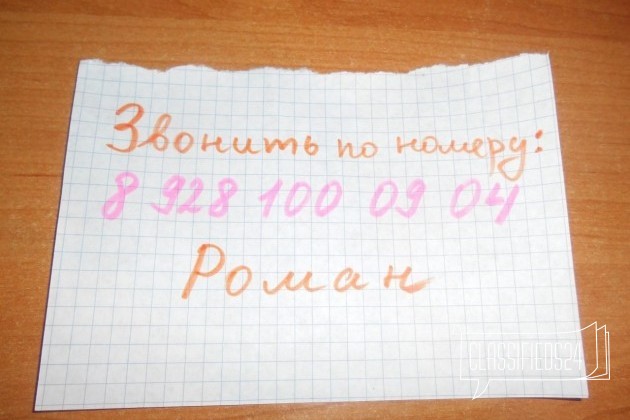 Звонить по номеру:
8 928 100 09 04
Роман
CLASSIFIEDS24